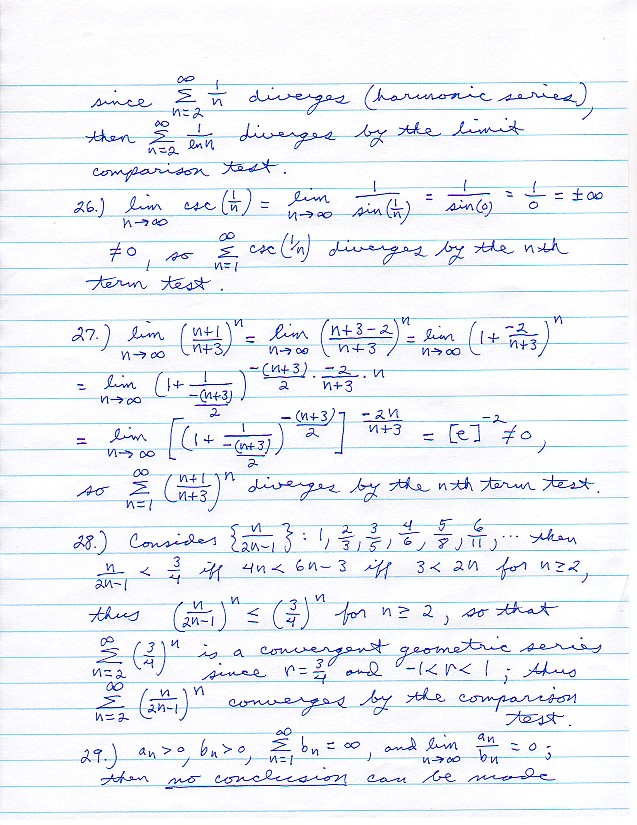 since \sum_{n=2}^{∞} \frac{1}{n} diverges (harmonic series),
then \sum_{n=2}^{∞} \frac{1}{\ln n} diverges by the limit
comparison test.
26.) \lim_{n→∞} csc(\frac{1}{n}) = \lim_{n→∞} \frac{1}{\sin(\frac{1}{n})} = \frac{1}{\sin(0)} = \frac{1}{0} = ±∞
≠0, so \sum_{n=1}^{∞} csc(1/n) diverges by the nth
term test.
27.) \lim_{n→∞} (\frac{n+1}{n+3})^n = \lim_{n→∞} (\frac{n+3-2}{n+3})^n = \lim_{n→∞} (1 + \frac{-2}{n+3})^n
= \lim_{n→∞} (1 + \frac{1}{\frac{-(n+3)}{2}})^{\frac{-(n+3)}{2} · \frac{-2}{n+3} · n}
= \lim_{n→∞} [(1 + \frac{1}{\frac{-(n+3)}{2}})^{\frac{-(n+3)}{2}}]^{\frac{-2n}{n+3}} = [e]^{-2} ≠0,
so \sum_{n=1}^{∞} (\frac{n+1}{n+3})^n diverges by the nth term test.
28.) Consider {\frac{n}{2n-1}} : 1, \frac{2}{3}, \frac{3}{5}, \frac{4}{6}, \frac{5}{8}, \frac{6}{11}, ... then
\frac{n}{2n-1} < \frac{3}{4} iff 4n < 6n-3 iff 3 < 2n for n≥2,
thus (\frac{n}{2n-1})^n ≤ (\frac{3}{4})^n for n≥2, so that
\sum_{n=2}^{∞} (\frac{3}{4})^n is a convergent geometric series
since r=\frac{3}{4} and -1<r<1; thus
\sum_{n=2}^{∞} (\frac{n}{2n-1})^n converges by the comparison
test.
29.) a_n>0, b_n>0, \sum_{n=1}^{∞} b_n = ∞, and \lim_{n→∞} \frac{a_n}{b_n} = 0;
then no conclusion can be made